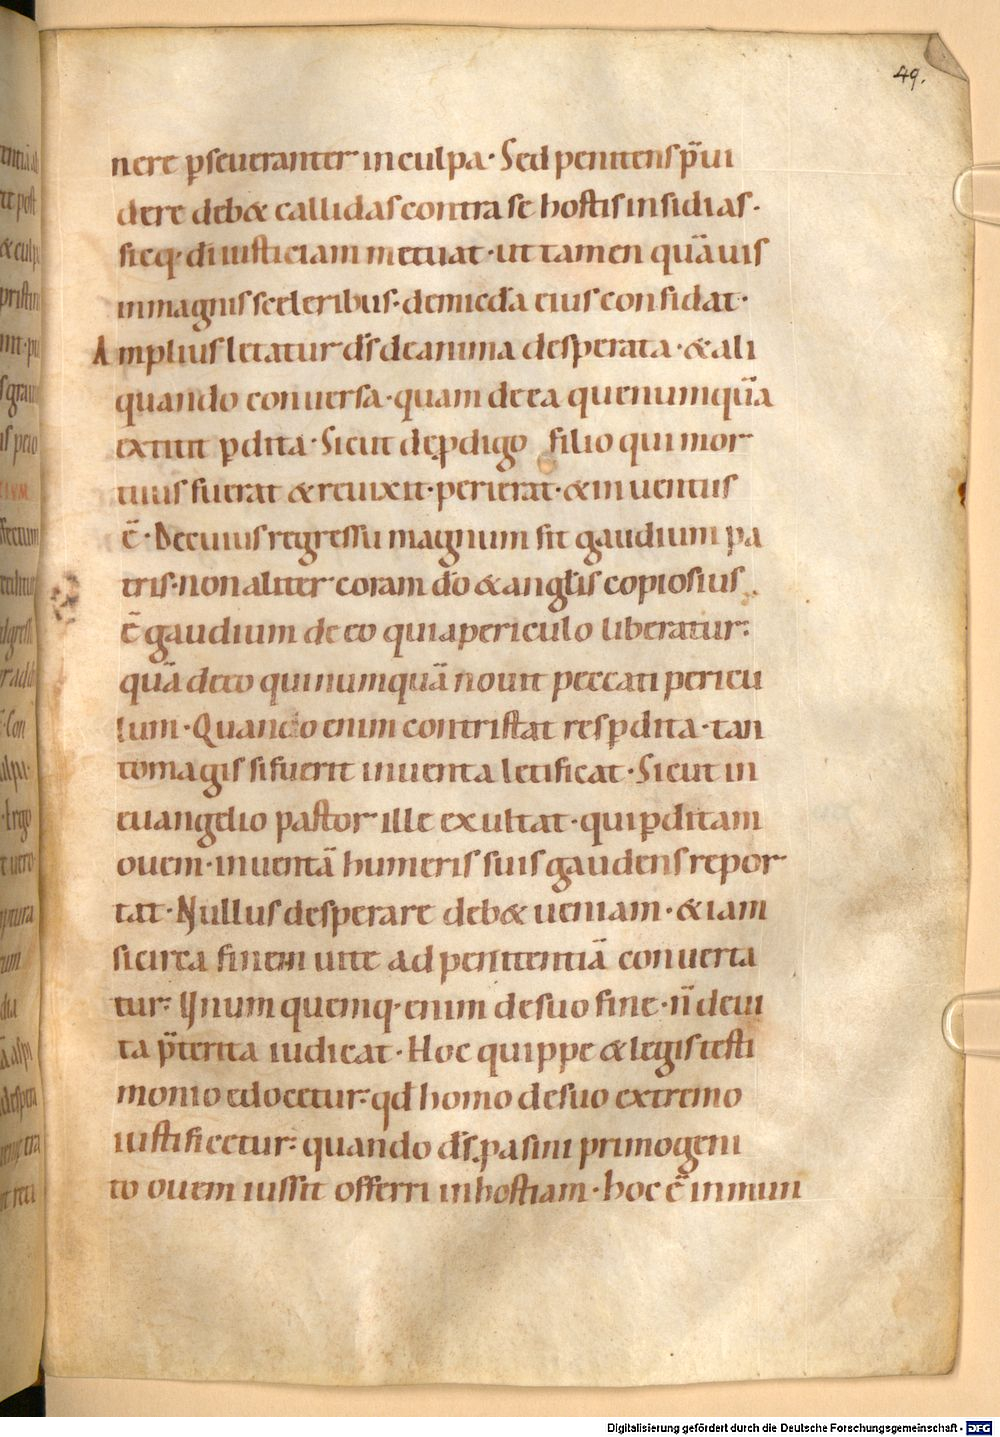 49.
nere ꝑseueranter in culpa· Sed penitens p̄ui
dere deb& callidas contra se hostis insidias·
sicq· di iusticiam metuat· ut tamen quāuis
in magnis sceleribus· de mic̄dia eius confidat·
Amplius letatur d̄s de anima desperata· & ali
quando conuersa· quam de ea que numquā
extitit ꝑdita· Sicut de ꝓdigo filio qui mor
tuus fuerat & reuixit· perierat· & inuentus
ē· De cuius regressu magnum fit gaudium pa
tris· non aliter coram d̄o & angl̄is copiosius
ē gaudium de eo qui a periculo liberatur·
quā de eo qui numquā nouit peccati pericu
lum· Quando enim contristat res ꝑdita· tan
to magis si fuerit inuenta letificat· Sicut in
euangelio pastor ille exultat· qui ꝑditam
ouem· inuentā humeris suis gaudens repor
tat· Nullus desperare deb& ueniam· & iam
si circa finem uite ad penitentiā conuerta
tur· Unum quemq· enim de suo fine· n̄ de ui
ta p̄terita iudicat· Hoc quippe & legis testi
monio edocetur· qd̄ homo de suo extremo
iustificetur· quando d̄s ꝓ asini primogeni
to ouem iussit offerri in hostiam· hoc ē inmun
Digitalisierung gefördert durch die Deutsche Forschungsgemeinschaft - DFG